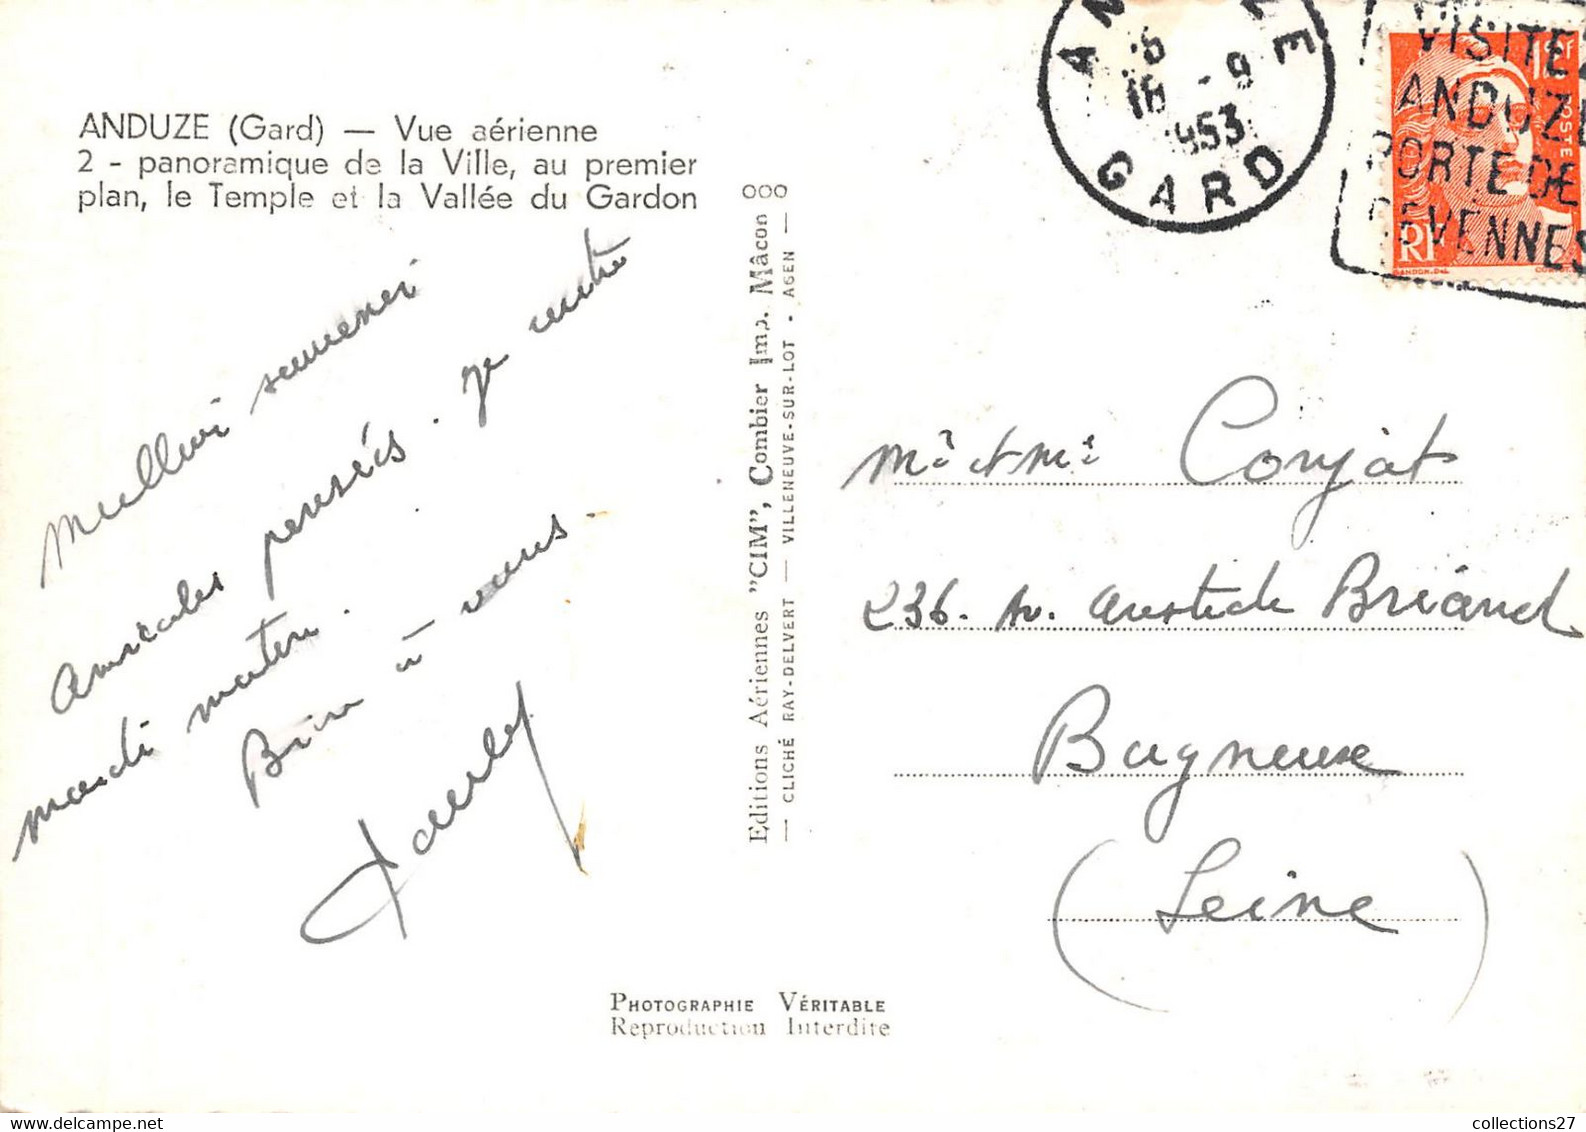 ANDUZE (Gard) — Vue aérienne
2 - panoramique de la Ville, au premier
plan, le Temple et la Vallée du Gardon
Meilleur souvenir
Amicales pensées. Je rentre
mardi matin.
Bien à vous.
Editions Aériennes "CIM", Combier Imp. Mâcon
— CLICHÉ RAY-DELVERT — VILLENEUVE-SUR-LOT - AGEN —
000
PHOTOGRAPHIE VÉRITABLE
Reproduction Interdite
GARD
16 -9
1953
VISITEZ
ANDUZE
PORTE DE
CEVENNES
POSTE
RF
GANDON.DEL
Mr et Me Conjat
236. Av. Aristide Briand
Bagneux
(Seine)
collections27